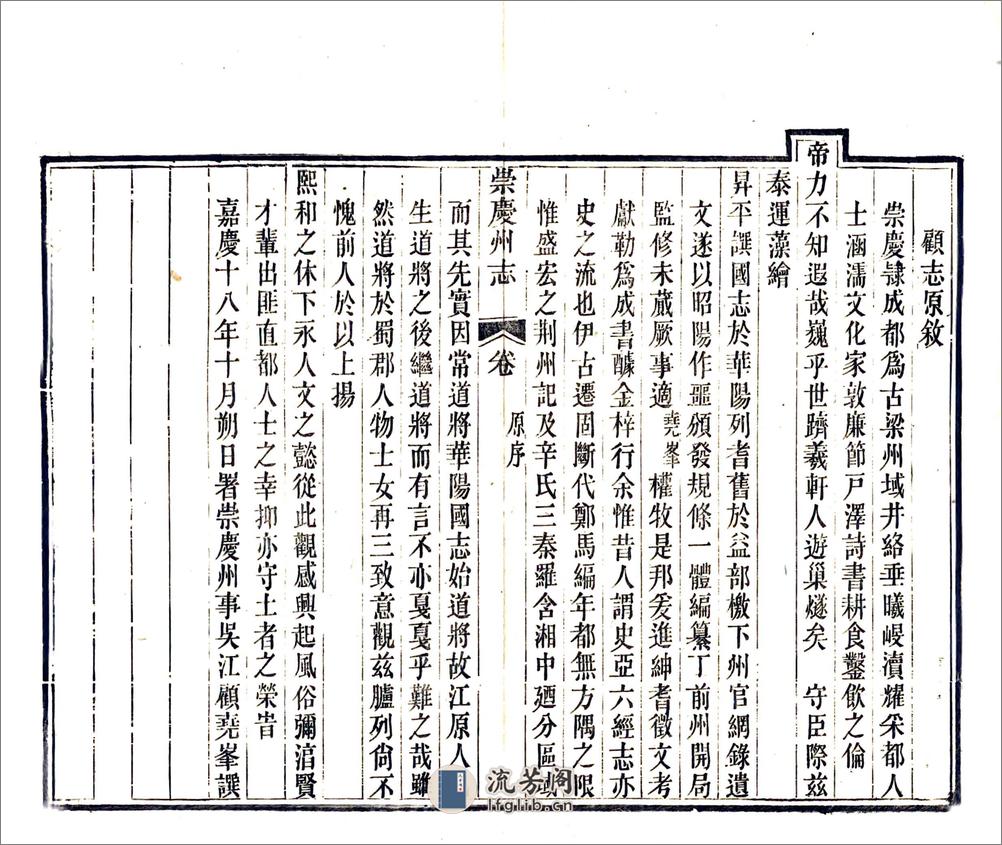 顧志原敘
崇慶隸成都爲古梁州域井絡垂曦嵕瀆耀采都人
士涵濡文化家敦廉節戸澤詩書耕食鑿飲之倫
帝力不知遐哉巍乎世躋羲軒人遊巢燧矣 守臣際茲
泰運藻繪
昇平譔國志於華陽列耆舊於益部檄下州官網錄遺
文遂以昭陽作噩頒發規條一體編纂丁前州開局
監修未蕆厥事適堯峯權牧是邦爰進紳耆徵文考
獻勒爲成書醵金梓行余惟昔人謂史亞六經志亦
史之流也伊古遷固斷代鄭馬編年都無方隅之限
惟盛宏之荆州記及辛氏三秦羅含湘中廼分區域
崇慶州志 卷 原序
而其先實因常道將華陽國志始道將故江原人
生道將之後繼道將而有言不亦戛戛乎難之哉雖
然道將於蜀郡人物士女再三致意觀兹臚列尙不
愧前人於以上揚
熙和之休下永人文之懿從此觀感興起風俗彌淯賢
才輩出匪直都人士之幸抑亦守土者之榮旹
嘉慶十八年十月朔日署崇慶州事吳江顧堯峯譔
流芳閣
lfglib.cn